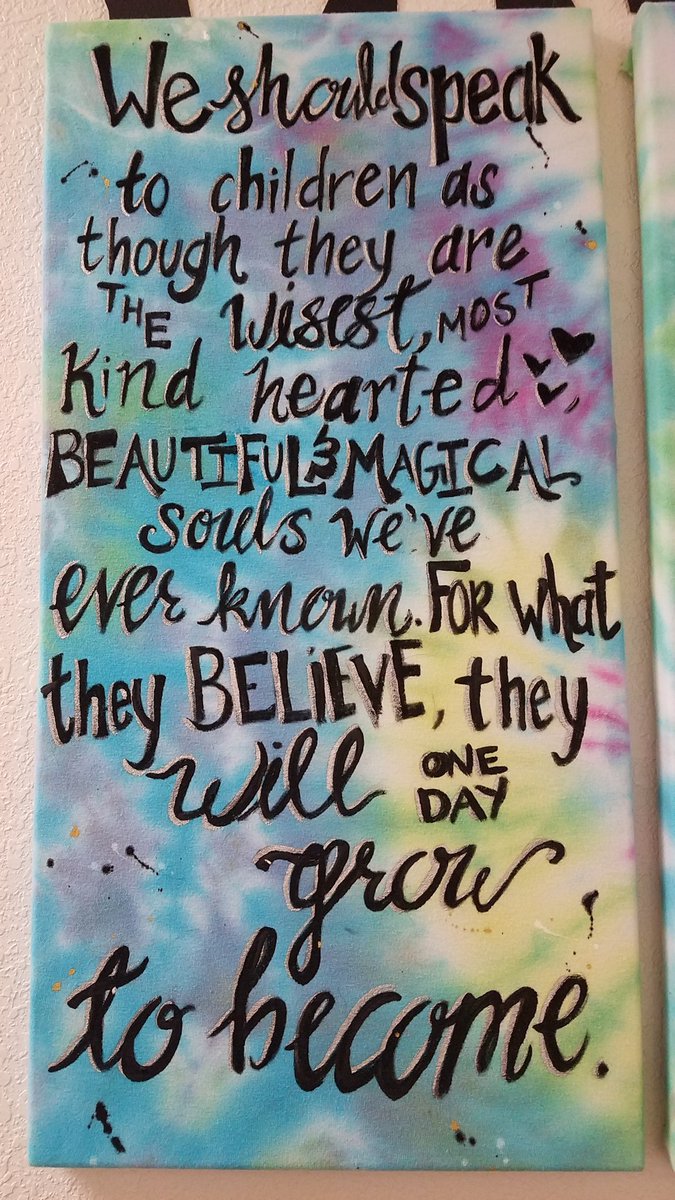 We should speak
to children as
though they are
THE wisest, MOST
kind hearted,
BEAUTIFUL & MAGICAL
souls we've
ever known. FOR what
they BELIEVE, they
will ONE DAY
grow
to become.